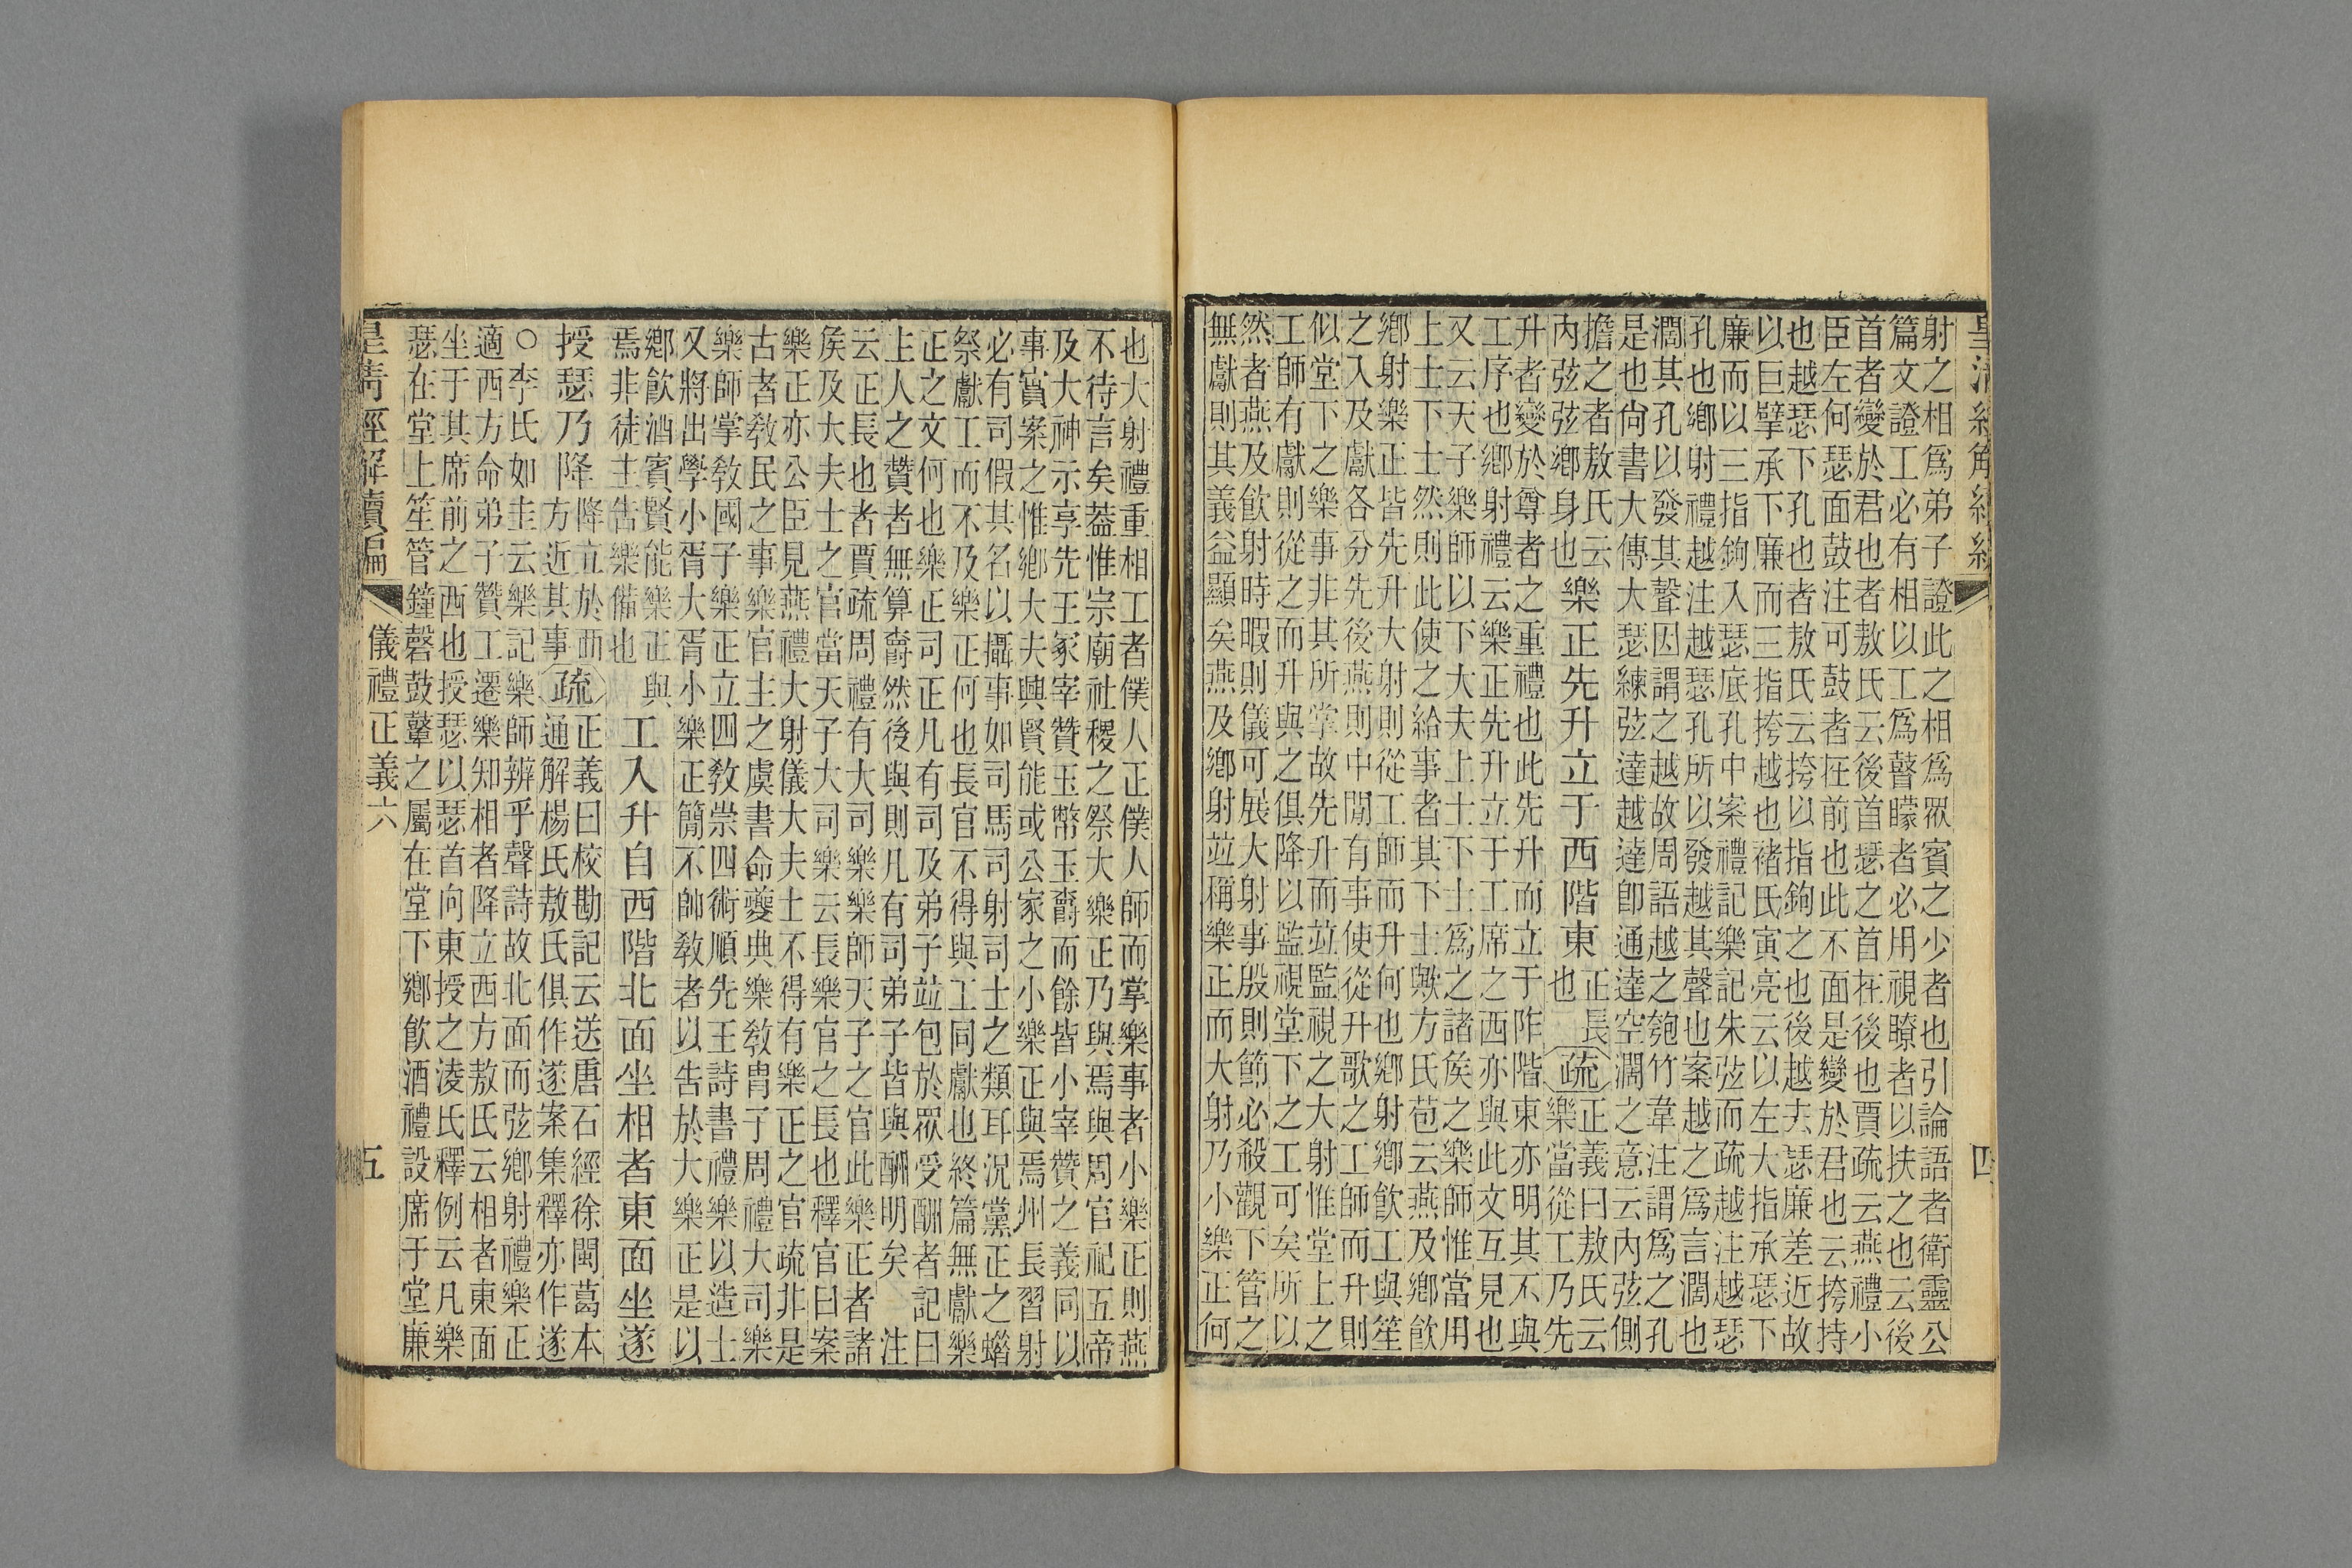 皇清經解續編
四
射之相爲弟子證此之相爲眾賓之少者也引論語者衛靈公
篇文證工必有相以工爲瞽矇者必用視瞭者以扶之也云後
首者變於君也者敖氏云後首瑟之首在後也賈疏云燕禮小
臣左何瑟面鼓注可鼓者在前也此不面是變於君也云挎持
也越瑟下孔也者敖氏云挎以指鉤之也後越去瑟廉差近故
以巨擘承下廉而三指挎越也褚氏寅亮云以左大指承瑟下
廉而以三指鉤入瑟底孔中案禮記樂記朱弦而疏越注越瑟
孔也鄉射禮越注越瑟孔所以發越其聲也案越之爲言濶也
濶其孔以發其聲因謂之越故周語越之匏竹韋注謂爲之孔
是也尙書大傳大瑟練弦達越達卽通達空濶之意云內弦側
擔之者敖氏云
內弦弦鄉身也
樂正先升立于西階東
正長
也
疏
正義曰敖氏云
樂當從工乃先
升者變於尊者之重禮也此先升而立于阼階東亦明其不與
工序也鄉射禮云樂正先升立于工席之西亦與此文互見也
又云天子樂師以下大夫上士下士爲之諸侯之樂師惟當用
上士下士然則此使之給事者其下士歟方氏苞云燕及鄉飮
鄉射樂正皆先升大射則從工師而升何也鄉射鄉飮工與笙
之入及獻各分先後燕則中閒有事使從升歌之工師而升則
似堂下之樂事非其所掌故先升而竝監視之大射惟堂上之
工師有獻則從之而升與之俱降以監視堂下之工可矣所以
然者燕及飮射時暇則儀可展大射事殷則節必殺觀下管之
無獻則其義益顯矣燕及鄉射竝稱樂正而大射乃小樂正何
也大射禮重相工者僕人正僕人師而掌樂事者小樂正則燕
不待言矣葢惟宗廟社稷之祭大樂正乃與焉與周官祀五帝
及大神示享先王冢宰贊玉幣玉爵而餘皆小宰贊之義同以
事實案之惟鄉大夫興賢能或公家之小樂正與焉州長習射
必有司假其名以攝事如司馬司射司士之類耳況黨正之蜡
祭獻工而不及樂正何也長官不得與工同獻也終篇無獻樂
正之文何也樂正司正凡有司及弟子竝包於眾受酬者記曰
上人之贊者無算爵然後與則凡有司弟子皆與酬明矣　注
云正長也者賈疏周禮有大司樂樂師天子之官此樂正者諸
侯及大夫士之官當天子大司樂云長樂官之長也釋官曰案
樂正亦公臣見燕禮大射儀大夫士不得有樂正之官疏非是
古者敎民之事樂官主之虞書命夔典樂敎胄子周禮大司樂
樂師掌敎國子樂正立四敎崇四術順先王詩書禮樂以造士
又將出學小胥大胥小樂正簡不帥敎者以告於大樂正是以
鄉飮酒賓賢能樂正與
焉非徒主告樂備也
工入升自西階北面坐相者東面坐遂
授瑟乃降
降立於西
方近其事
疏
正義曰校勘記云送唐石經徐閩葛本
通解楊氏敖氏俱作遂案集釋亦作遂
○李氏如圭云樂記樂師辨乎聲詩故北面而弦鄉射禮樂正
適西方命弟子贊工遷樂知相者降立西方敖氏云相者東面
坐于其席前之西也授瑟以瑟首向東授之淩氏釋例云凡樂
瑟在堂上笙管鐘磬鼓鼙之屬在堂下鄉飮酒禮設席于堂廉
皇清經解續編
儀禮正義六
五